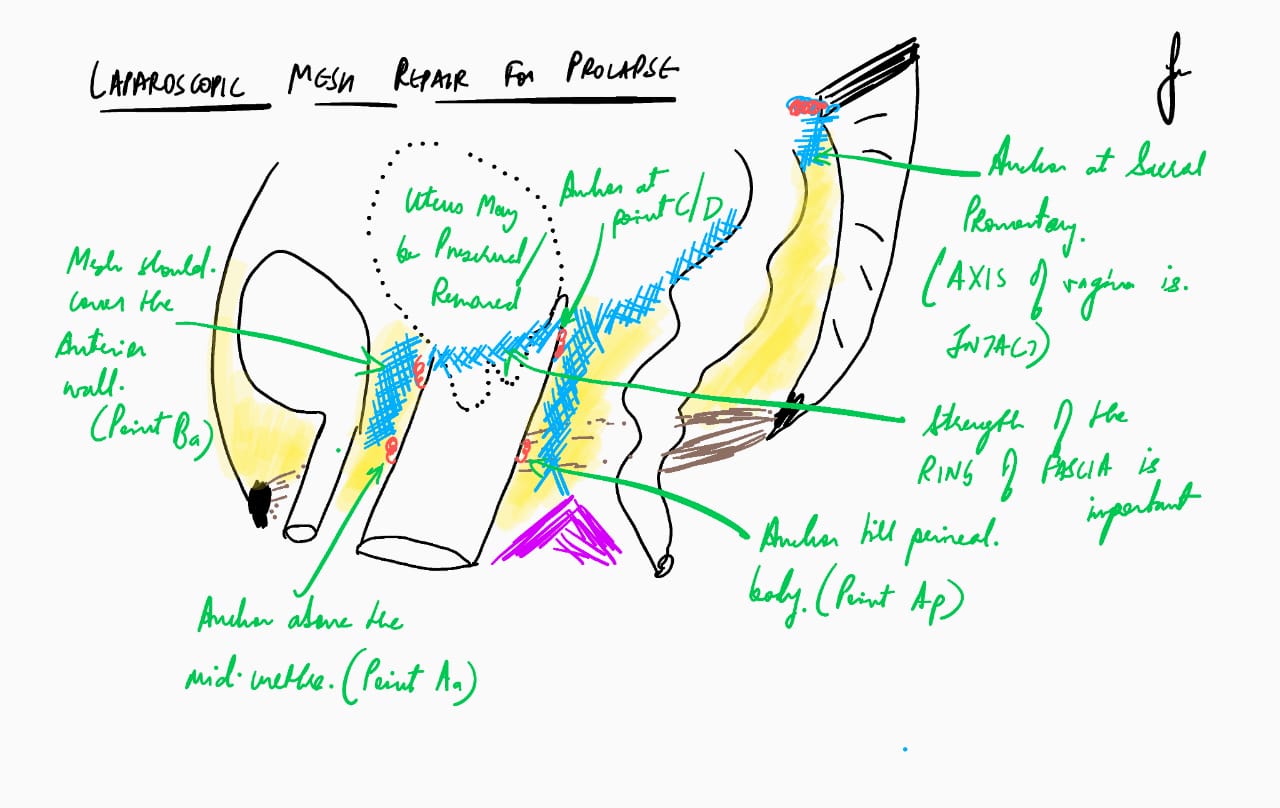 LAPAROSCOPIC MESH REPAIR FOR PROLAPSE
Uterus May
be Preserved/
Removed
Anchor at
point C/D
Anchor at Sacral
Promontory.
(AXIS of vagina is.
INTACT)
Mesh should.
cover the
Anterior
wall.
(Point Ba)
Strength of the
RING of FASCIA is
important
Anchor till perineal.
body. (Point Ap)
Anchor above the
mid-urethra. (Point Aa)